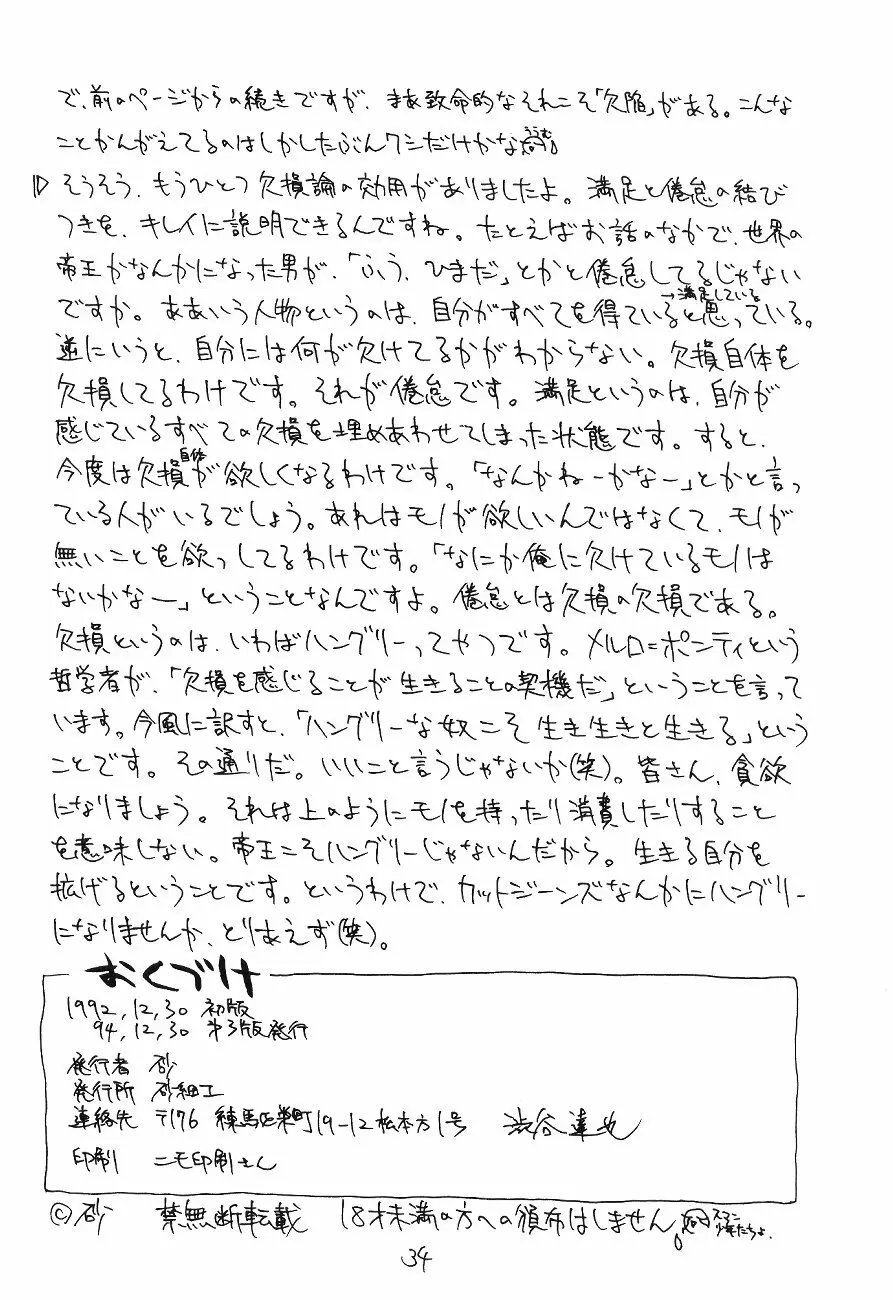 で、前のページからの続きですが、まあ致命的なそれこそ「欠陥」がある。こんな
ことかんがえてるのはしかしたぶんワシだけかな
そうそう、もうひとつ欠損論の効用がありましたよ。満足と倦怠の結び
つきを、キレイに説明できるんですね。たとえばお話のなかで、世界の
帝王かなんかになった男が、「ふう、ひまだ」とかと倦怠してるじゃない
→満足している
ですか。ああいう人物というのは、自分がすべてを得ていると思っている。
逆にいうと、自分には何が欠けてるかがわからない。欠損自体を
欠損してるわけです。それが倦怠です。満足というのは、自分が
感じているすべての欠損を埋めあわせてしまった状態です。すると、
今度は欠損自体が欲しくなるわけです。「なんかねーかなー」とかと言っ
ている人がいるでしょう。あれはモノが欲しいんではなくて、モノが
無いことを欲っしてるわけです。「なにか俺に欠けているモノは
ないかなー」ということなんですよ。倦怠とは欠損の欠損である。
欠損というのは、いわばハングリーってやつです。メルロ=ポンティという
哲学者が、「欠損を感じることが生きることの契機だ」ということを言って
います。今風に訳すと、「ハングリーな奴こそ生き生きと生きる」という
ことです。その通りだ。いいこと言うじゃないか(笑)。皆さん、貪欲
になりましょう。それは上のようにモノを持ったり消費したりすること
を意味しない。帝王こそハングリーじゃないんだから。生きる自分を
拡げるということです。というわけで、カットジーンズなんかにハングリー
になりませんか、とりあえず(笑)。
おくづけ
1992,12,30 初版
94,12,30 第3版発行
発行者 砂
発行所 砂細工
連絡先 〒176 練馬区栄町19-12松本方1号 渋谷達也
印刷 ニモ印刷さん
©砂 禁無断転載 18才未満の方への頒布はしません
34